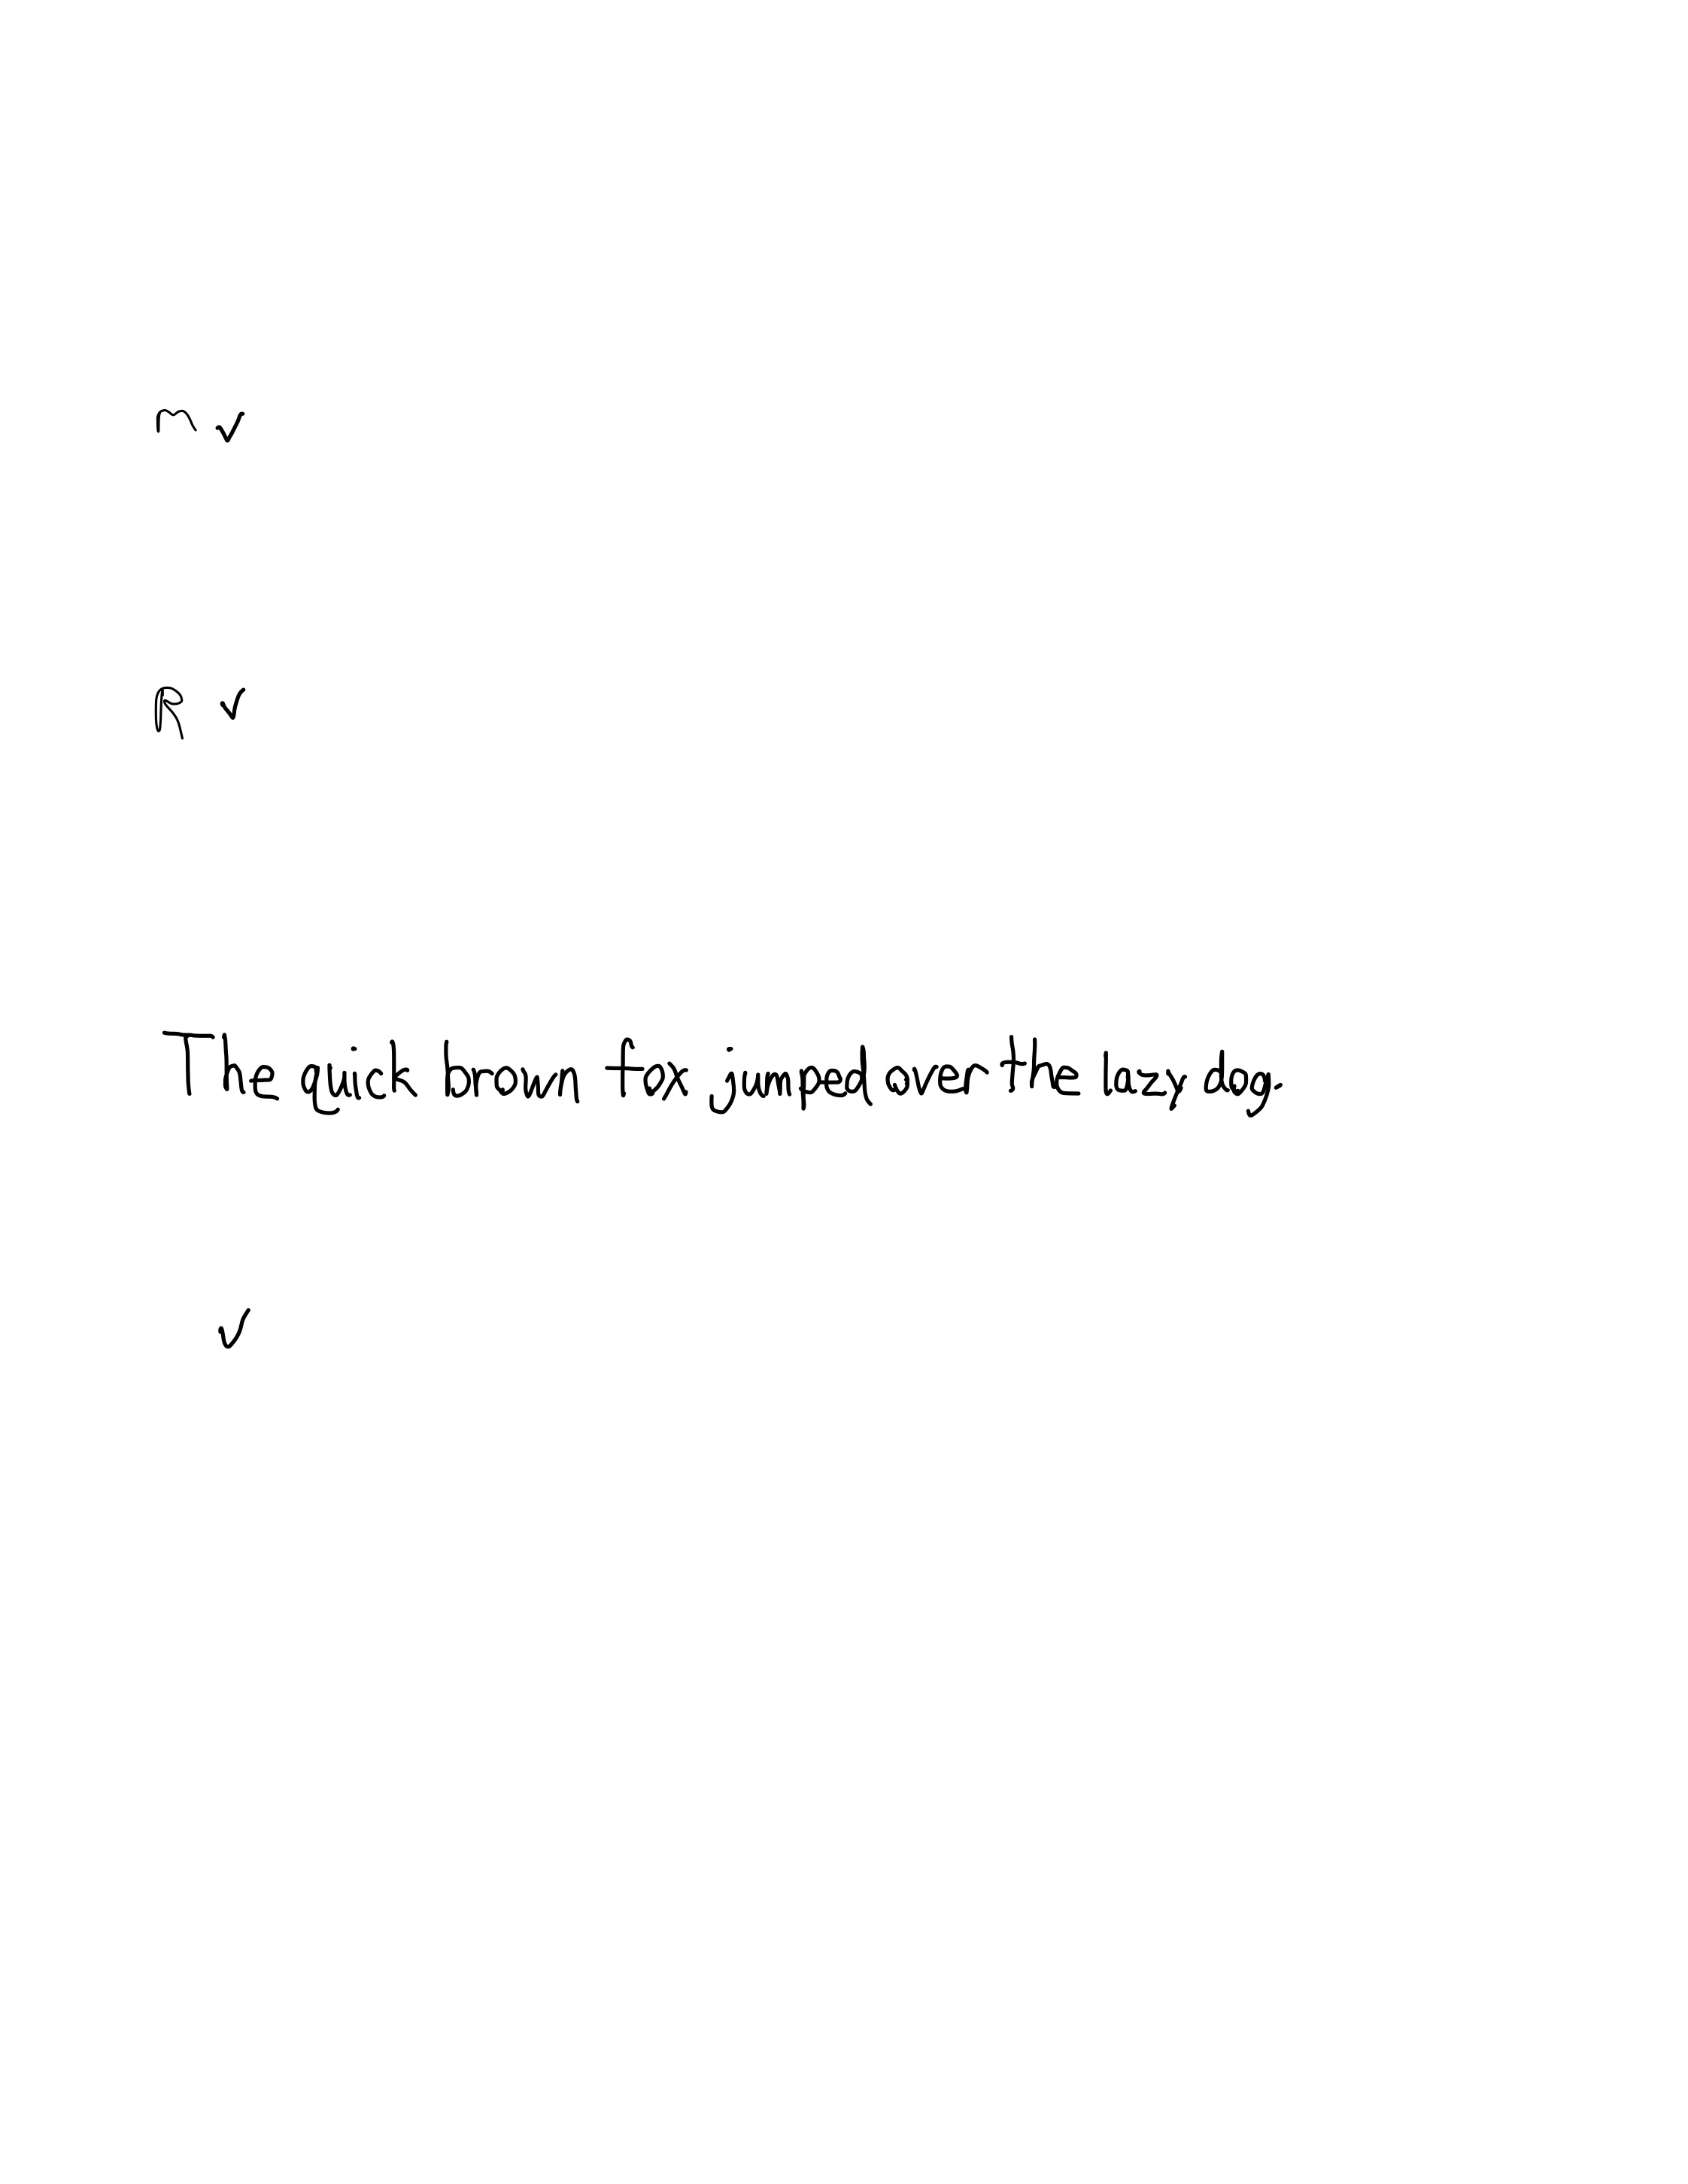 m ✓
R ✓
The quick brown fox jumped over the lazy dog.
✓